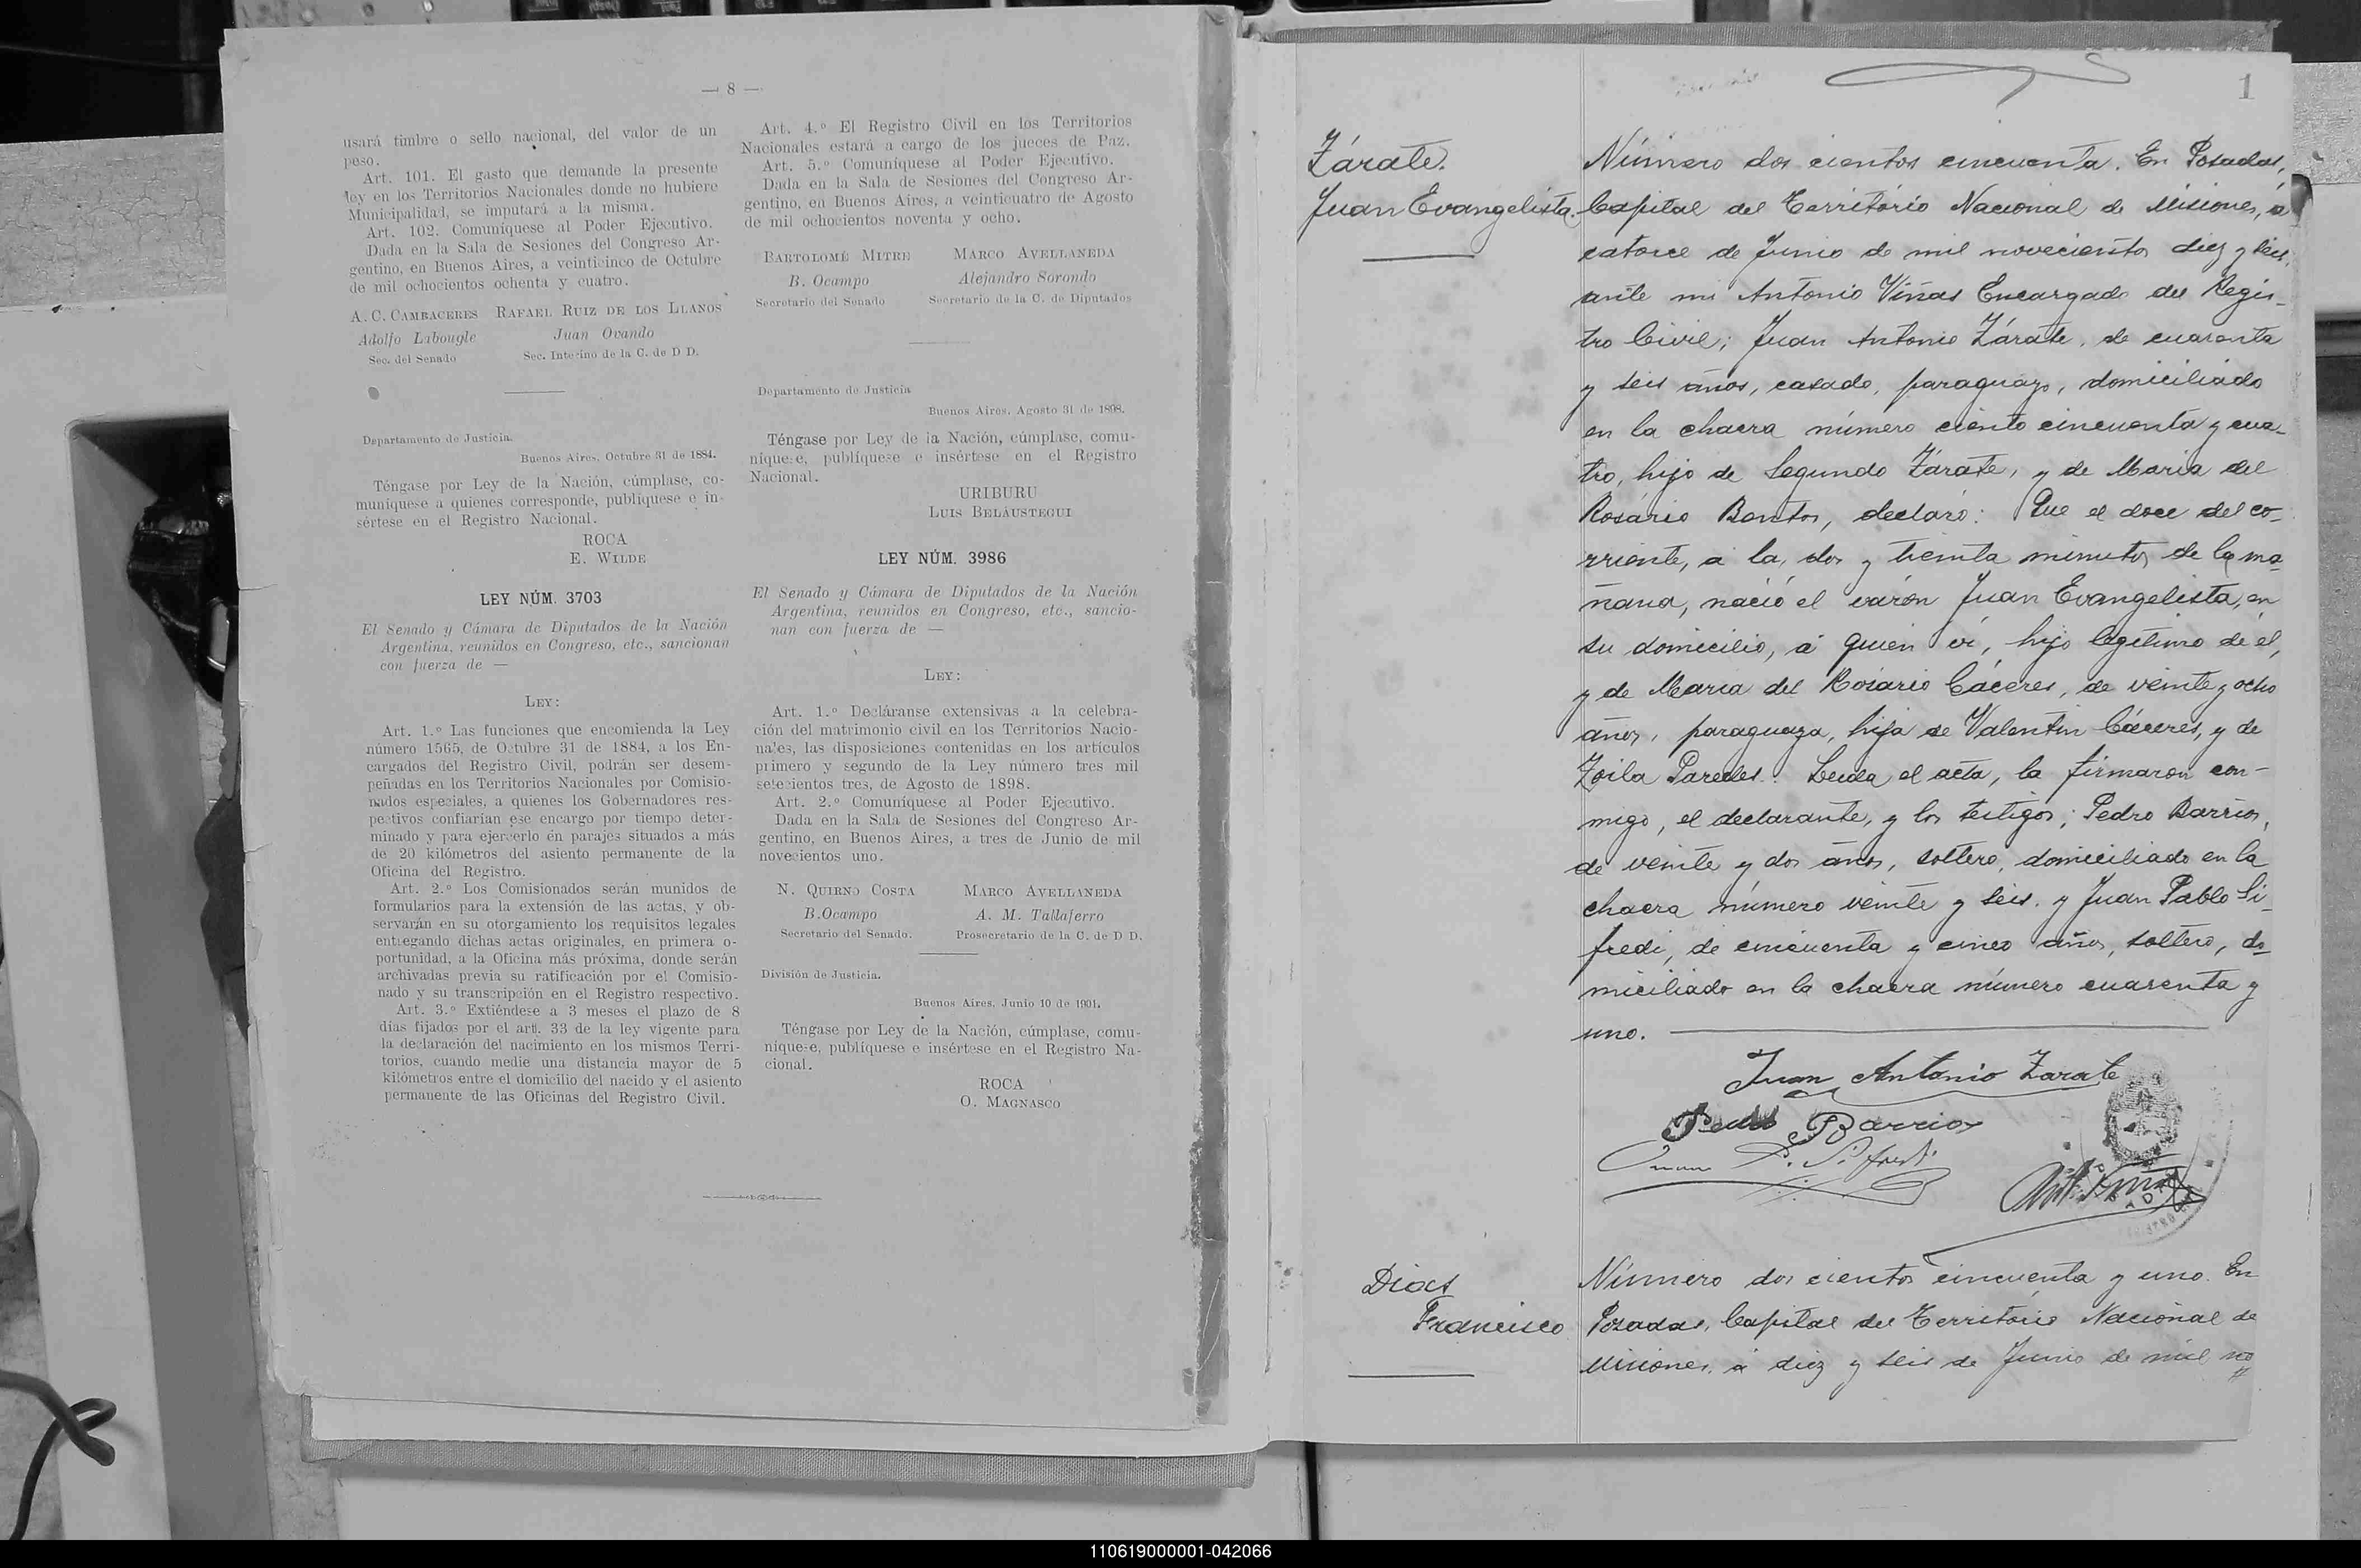 — 8 —
usará timbre o sello nacional, del valor de un
peso.
Art. 101. El gasto que demande la presente
ley en los Territorios Nacionales donde no hubiere
Municipalidad, se imputará a la misma.
Art. 102. Comuníquese al Poder Ejecutivo.
Dada en la Sala de Sesiones del Congreso Ar-
gentino, en Buenos Aires, a veinticinco de Octubre
de mil ochocientos ochenta y cuatro.
A. C. CAMBACERES RAFAEL RUIZ DE LOS LLANOS
Adolfo Labougle Juan Ovando
Sec. del Senado Sec. Interino de la C. de D D.
Departamento de Justicia.
Buenos Aires, Octubre 31 de 1884.
Téngase por Ley de la Nación, cúmplase, co-
muníquese a quienes corresponde, publíquese e in-
sértese en el Registro Nacional.
ROCA
E. WILDE
LEY NÚM. 3703
El Senado y Cámara de Diputados de la Nación
Argentina, reunidos en Congreso, etc., sancionan
con fuerza de —
LEY:
Art. 1.º Las funciones que encomienda la Ley
número 1565, de Octubre 31 de 1884, a los En-
cargados del Registro Civil, podrán ser desem-
peñadas en los Territorios Nacionales por Comisio-
nados especiales, a quienes los Gobernadores res-
pectivos confiarían ese encargo por tiempo deter-
minado y para ejercerlo én parajes situados a más
de 20 kilómetros del asiento permanente de la
Oficina del Registro.
Art. 2.º Los Comisionados serán munidos de
formularios para la extensión de las actas, y ob-
servarán en su otorgamiento los requisitos legales
entregando dichas actas originales, en primera o-
portunidad, a la Oficina más próxima, donde serán
archivadas previa su ratificación por el Comisio-
nado y su transcripción en el Registro respectivo.
Art. 3.º Extiéndese a 3 meses el plazo de 8
días fijados por el art. 33 de la ley vigente para
la declaración del nacimiento en los mismos Terri-
torios, cuando medie una distancia mayor de 5
kilómetros entre el domicilio del nacido y el asiento
permanente de las Oficinas del Registro Civil.
Art. 4.º El Registro Civil en los Territorios
Nacionales estará a cargo de los jueces de Paz.
Art. 5.º Comuníquese al Poder Ejecutivo.
Dada en la Sala de Sesiones del Congreso Ar-
gentino, en Buenos Aires, a veinticuatro de Agosto
de mil ochocientos noventa y ocho.
BARTOLOMÉ MITRE MARCO AVELLANEDA
B. Ocampo Alejandro Sorondo
Secretario del Senado Secretario de la C. de Diputados
Departamento de Justicia
Buenos Aires, Agosto 31 de 1898.
Téngase por Ley de la Nación, cúmplase, comu-
níquese, publíquese e insértese en el Registro
Nacional.
URIBURU
LUIS BELÁUSTEGUI
LEY NÚM. 3986
El Senado y Cámara de Diputados de la Nación
Argentina, reunidos en Congreso, etc., sancio-
nan con fuerza de —
LEY:
Art. 1.º Decláranse extensivas a la celebra-
ción del matrimonio civil en los Territorios Nacio-
nales, las disposiciones contenidas en los artículos
primero y segundo de la Ley número tres mil
setecientos tres, de Agosto de 1898.
Art. 2.º Comuníquese al Poder Ejecutivo.
Dada en la Sala de Sesiones del Congreso Ar-
gentino, en Buenos Aires, a tres de Junio de mil
novecientos uno.
N. QUIRNO COSTA MARCO AVELLANEDA
B.Ocampo A. M. Tallaferro
Secretario del Senado. Prosecretario de la C. de D D.
División de Justicia.
Buenos Aires, Junio 10 de 1901.
Téngase por Ley de la Nación, cúmplase, comu-
níquese, publíquese e insértese en el Registro Na-
cional.
ROCA
O. MAGNASCO
1
Zárate.
Juan Evangelista.
Número dos cientos cincuenta. En Posadas,
Capital del Territorio Nacional de Misiones, á
catorce de Junio de mil novecientos diez y seis,
ante mi Antonio Viñas Encargado del Regis-
tro Civil; Juan Antonio Zárate, de cuarenta
y seis años, casado, paraguayo, domiciliado
en la chacra número ciento cincuenta y cua-
tro, hijo de Segundo Zárate, y de Maria del
Rosário Bontos, declaró: Que el doce del co-
rriente, á las dos y treinta minutos de la ma-
ñana, nació el varón Juan Evangelista, en
su domicilio, á quien ví, hijo legítimo de él,
y de Maria del Rosário Cáceres, de veinte y ocho
años, paraguaya, hija de Valentin Cáceres, y de
Zoila Paredes. Leida el acta, la firmaron con-
migo, el declarante, y los testigos; Pedro Barrios,
de veinte y dos años, soltero, domiciliado en la
chacra número veinte y seis. y Juan Pablo Si-
fredi, de cincuenta y cinco años, soltero, do-
miciliado en la chacra número cuarenta y
uno.
Juan Antonio Zarate
Pedro Barrios
Juan P. Sifredi
Dias
Francisco
Número dos cientos cincuenta y uno. En
Posadas, Capital del Territorio Nacional de
Misiones, á diez y seis de Junio de mil no
110619000001-042066